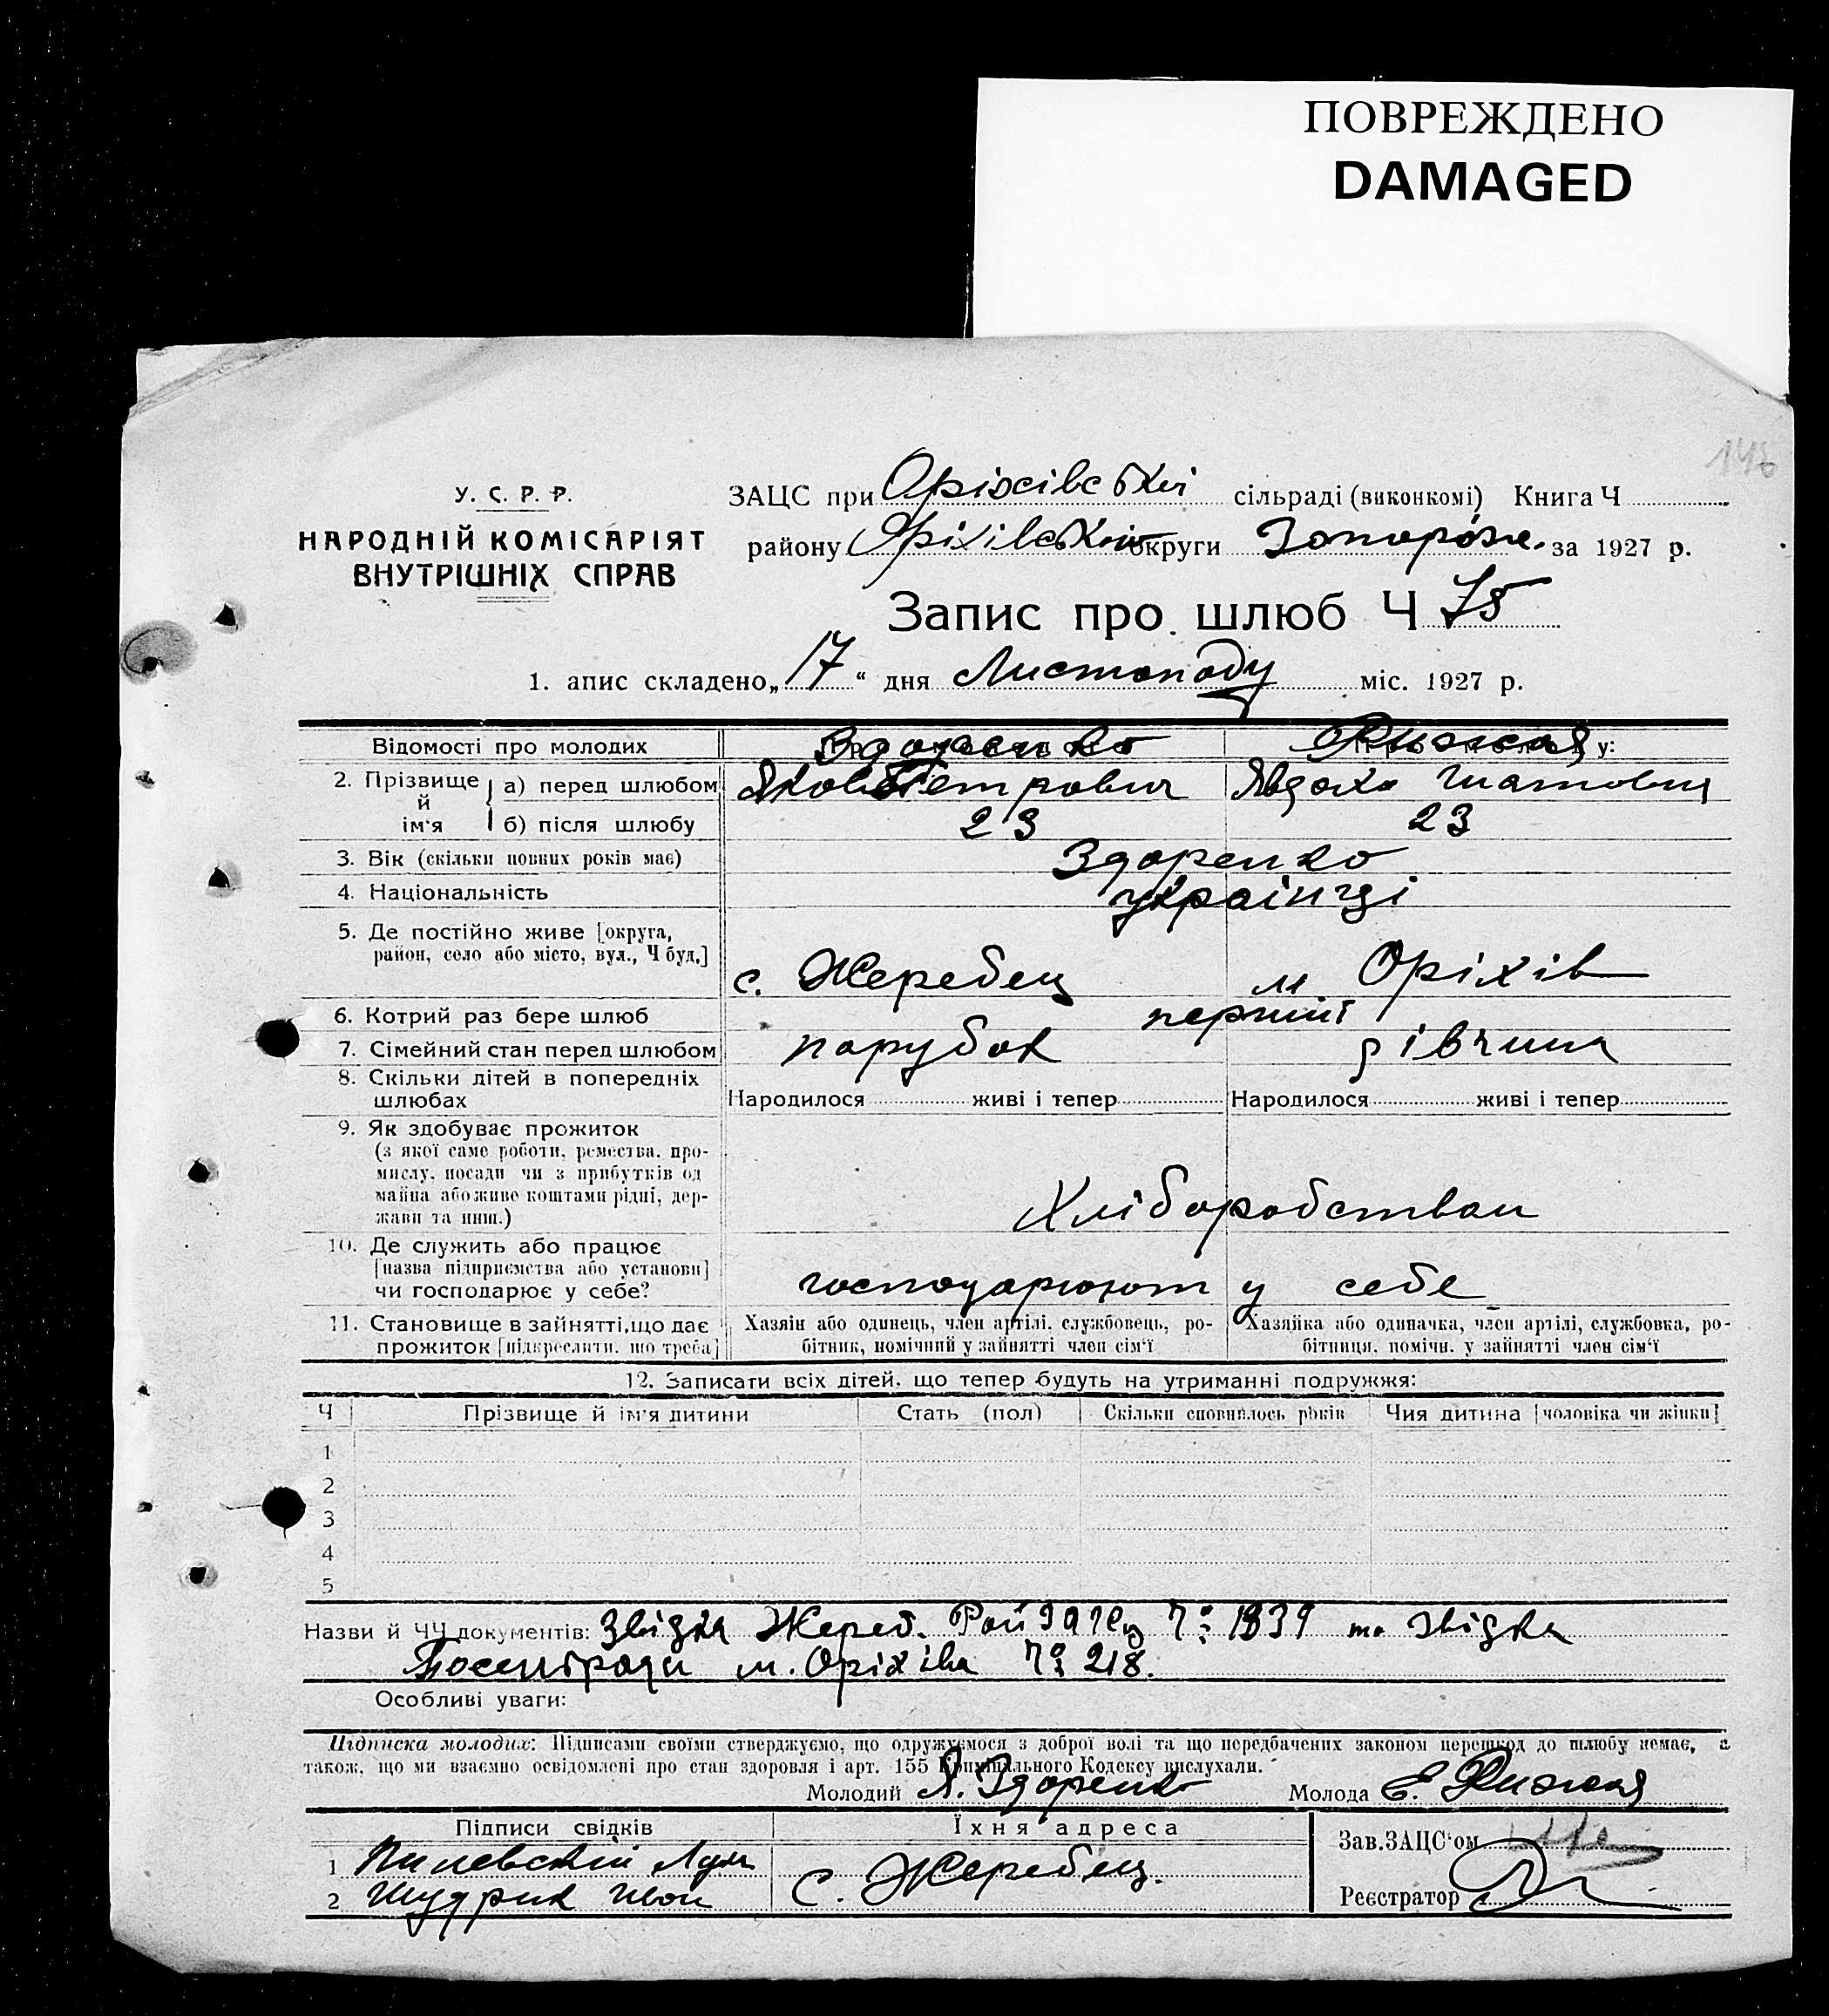 ПОВРЕЖДЕНО
DAMAGED
148
У. С. Р. Р.
НАРОДНІЙ КОМІСАРІЯТ
ВНУТРІШНІХ СПРАВ
ЗАЦС при Оріхівській сільраді (виконкомі) Книга Ч
району Оріхівського округи Запоріж. за 1927 р.
Запис про шлюб Ч 75
1. апис складено „17“ дня Листопаду міс. 1927 р.
Відомості про молодих Здоренко Рижкая у:
2. Прізвище й ім'я а) перед шлюбом Яков Петрович Явдоха
б) після шлюбу 23 23
3. Вік (скільки повних років має) Здоренко
4. Національність українці
5. Де постійно живе [округа,
район, село або місто, вул., Ч буд.] с. Жеребец м Оріхів
6. Котрий раз бере шлюб перший
7. Сімейний стан перед шлюбом парубок дівчина
8. Скільки дітей в попередніх
шлюбах Народилося живі і тепер Народилося живі і тепер
9. Як здобуває прожиток
(з якої саме роботи, ремества, про-
мислу, посади чи з прибутків од
майна або живе коштами рідні, дер-
жави та инш.) Хліборобством
10. Де служить або працює
[назва підприємства або установи]
чи господарює у себе? господарюют у себе
11. Становище в зайнятті, що дає Хазяїн або одинець, член артілі, службовець, ро- Хазяйка або одиначка, член артілі, службовка, ро-
прожиток [підкреслити, що треба] бітник, помічний у зайнятті член сім'ї бітниця, помічн. у зайнятті член сім'ї
12. Записати всіх дітей, що тепер будуть на утриманні подружжя:
Ч Прізвище й ім'я дитини Стать (пол) Скільки сповнилось років Чия дитина [чоловіка чи жінки]
1
2
3
4
5
Назви й ЧЧ документів: Звідка Жереб. Рай ЗАГСу № 1839 та Звідка
м. Оріхіва № 218.
Особливі уваги:
Підписка молодих: Підписами своїми стверджуємо, що одружуємося з доброї волі та що передбачених законом перешкод до шлюбу немає, а
також, що ми взаємно освідомлені про стан здоровля і арт. 155 Кримінального Кодексу вислухали.
Молодий Я. Здоренко Молода Е. Рижкая
Підписи свідків Їхня адреса Зав. ЗАЦС'ом
1
2 с. Жеребец. Реєстратор